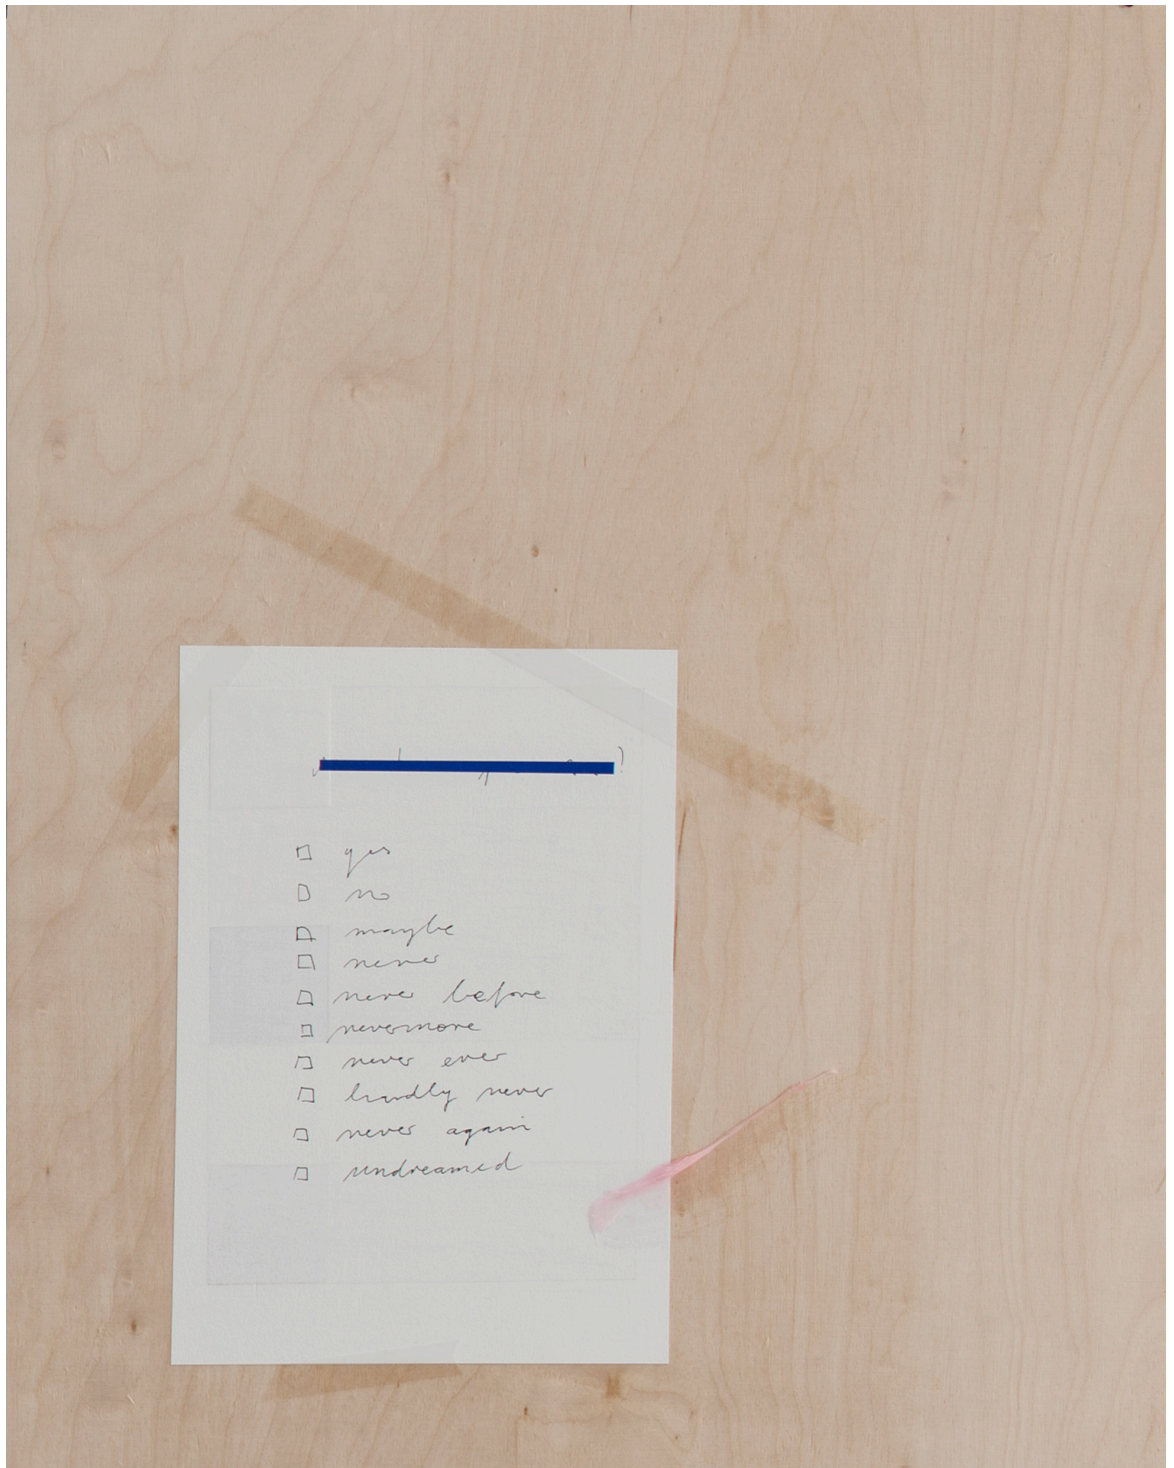 ?
☐ yes
☐ no
☐ maybe
☐ never
☐ never before
☐ nevermore
☐ never ever
☐ hardly never
☐ never again
☐ undreamed